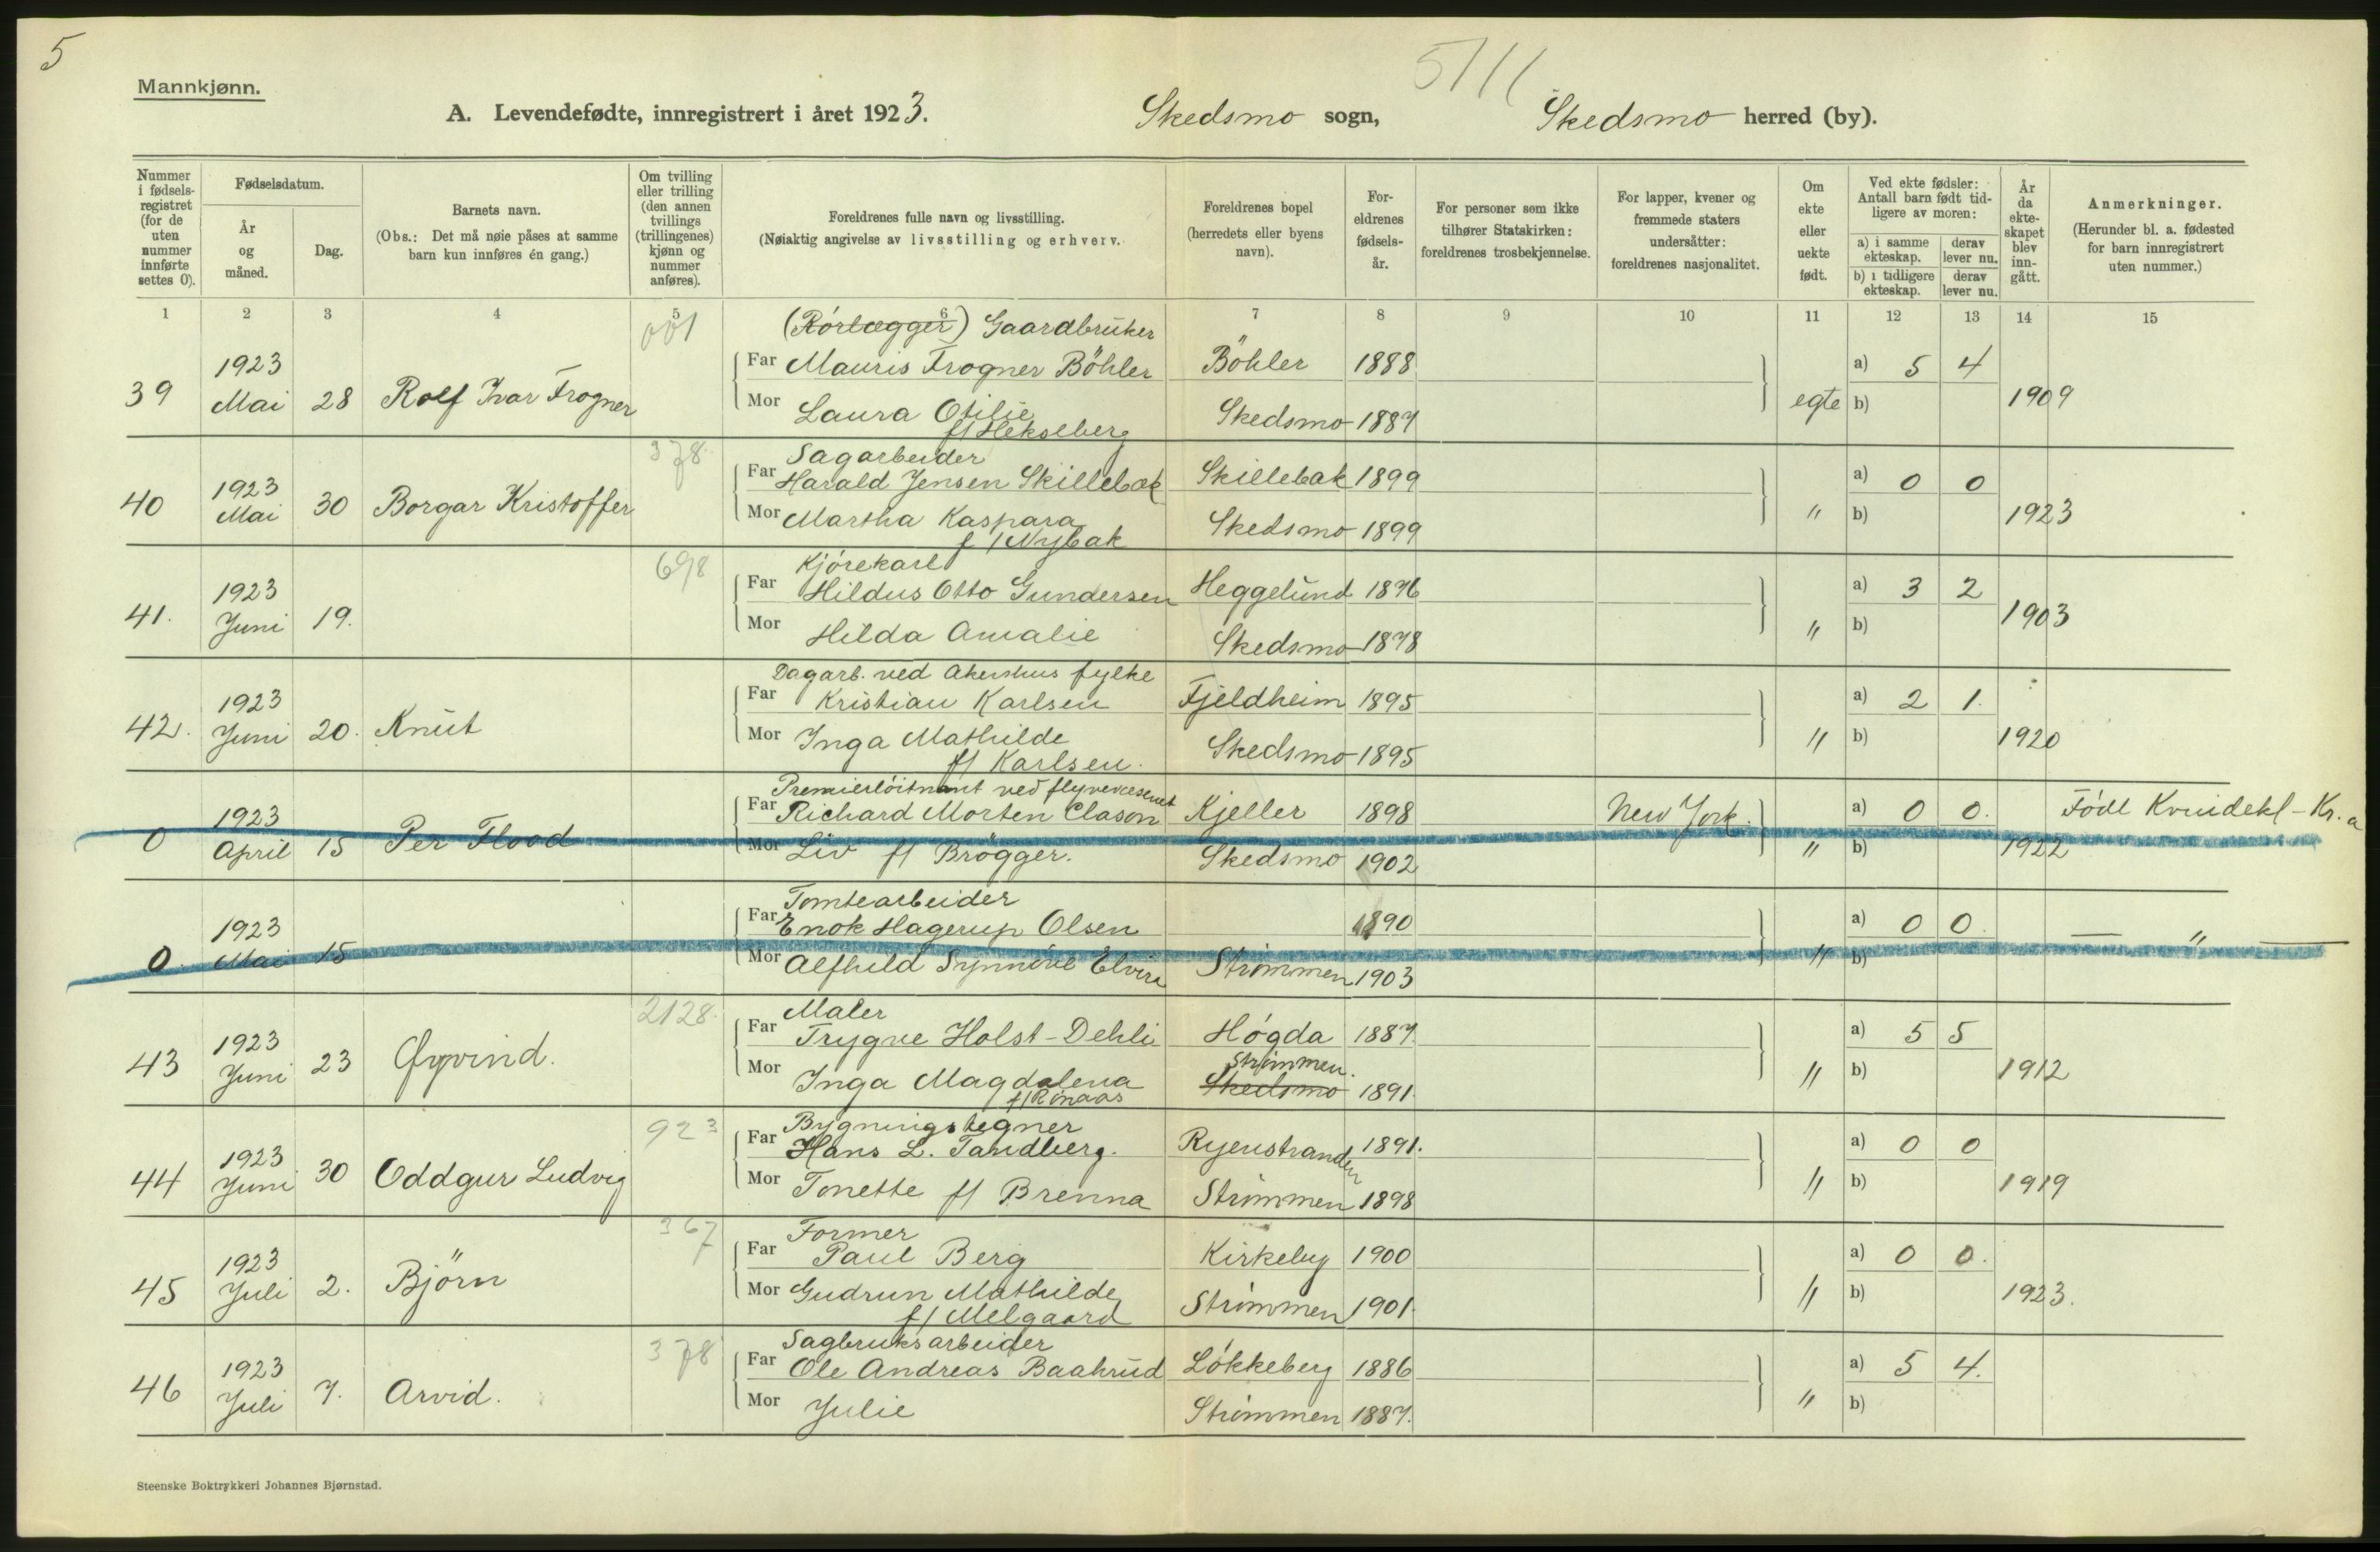 5
5111
Mannkjønn.
A. Levendefødte, innregistrert i året 1923. Skedsmo sogn, Skedsmo herred (by).
Nummer i fødsels-registret (for de uten nummer innførte settes 0).
Fødselsdatum.
År og måned.
Dag.
Barnets navn.
(Obs.: Det må nøie påses at samme barn kun innføres én gang.)
Om tvilling eller trilling (den annen tvillings (trillingenes) kjønn og nummer anføres).
Foreldrenes fulle navn og livsstilling.
(Nøiaktig angivelse av livsstilling og erhverv.
Foreldrenes bopel (herredets eller byens navn).
For-eldrenes fødsels-år.
For personer som ikke tilhører Statskirken: foreldrenes trosbekjennelse.
For lapper, kvener og fremmede staters undersåtter: foreldrenes nasjonalitet.
Om ekte eller uekte født.
Ved ekte fødsler: Antall barn født tid-ligere av moren:
a) i samme ekteskap. derav lever nu.
b) i tidligere ekteskap. derav lever nu.
År da ekte-skapet blev inn-gått.
Anmerkninger.
(Herunder bl. a. fødested for barn innregistrert uten nummer.)
1 2 3 4 5 6 7 8 9 10 11 12 13 14 15
001 (Rörlægger) Gaardbruker
1923 Far Mauris Frogner Böhler Böhler 1888 a) 5 4
39 Mai 28 Rolf Ivar Frogner Mor Laura Otilie Skedsmo 1887 egte b) 1909
f/ Hekseberg
378 Sagarbeider
1923 Far Harald Jensen Skillebak Skillebak 1899 a) 0 0
40 Mai 30 Borgar Kristoffer Mor Martha Kaspara Skedsmo 1899 " b) 1923
f/ Nybak
698 Kjørekarl
1923 Far Hildus Otto Gundersen Heggelund 1876 a) 3 2
41. Juni 19. Mor Hilda Amalie Skedsmo 1878 " b) 1903
Dagarb. ved Akershus fylke
1923 Far Kristian Karlsen Fjeldheim 1895 a) 2 1.
42. Juni 20. Knut Mor Inga Mathilde Skedsmo 1895 " b) 1920
f/ Karlsen.
Premierløitnant ved flyvevæsenet
1923 Far Richard Morten Clason Kjeller 1898 New York. a) 0 0. Födt Kvindekl-Kr.a
0 April 15 Per Flood Mor Liv f/ Brögger. Skedsmo 1902 " b) 1922
Tomtearbeider
1923 Far Enok Hagerup Olsen 1890 a) 0 0. — " —
0. Mai 15 Mor Alfhild Synnöve Elvira Strømmen 1903 " b)
2128. Maler
1923 Far Trygve Holst-Dehli Høgda 1887. a) 5 5
43 Juni 23 Øyvind. Strømmen.
Mor Inga Magdalena Skedsmo 1891. " b) 1912
923 Bygningstegner
1923 Far Hans L. Tandberg. Ryenstranden 1891. a) 0 0
44 Juni 30 Oddgur Ludvig Mor Tonette f/ Brenna Strømmen 1898 " b) 1919
367 Former
1923 Far Paul Berg Kirkeby 1900 a) 0 0.
45 Juli 2. Björn Mor Gudrun Mathilde Strømmen 1901. " b) 1923.
f/ Melgaard
378 Sagbruksarbeider
1923 Far Ole Andreas Baahrud Løkkeberg 1886 a) 5 4.
46 Juli 7. Arvid. Mor Julie Strømmen 1887. " b)
Steenske Boktrykkeri Johannes Bjørnstad.